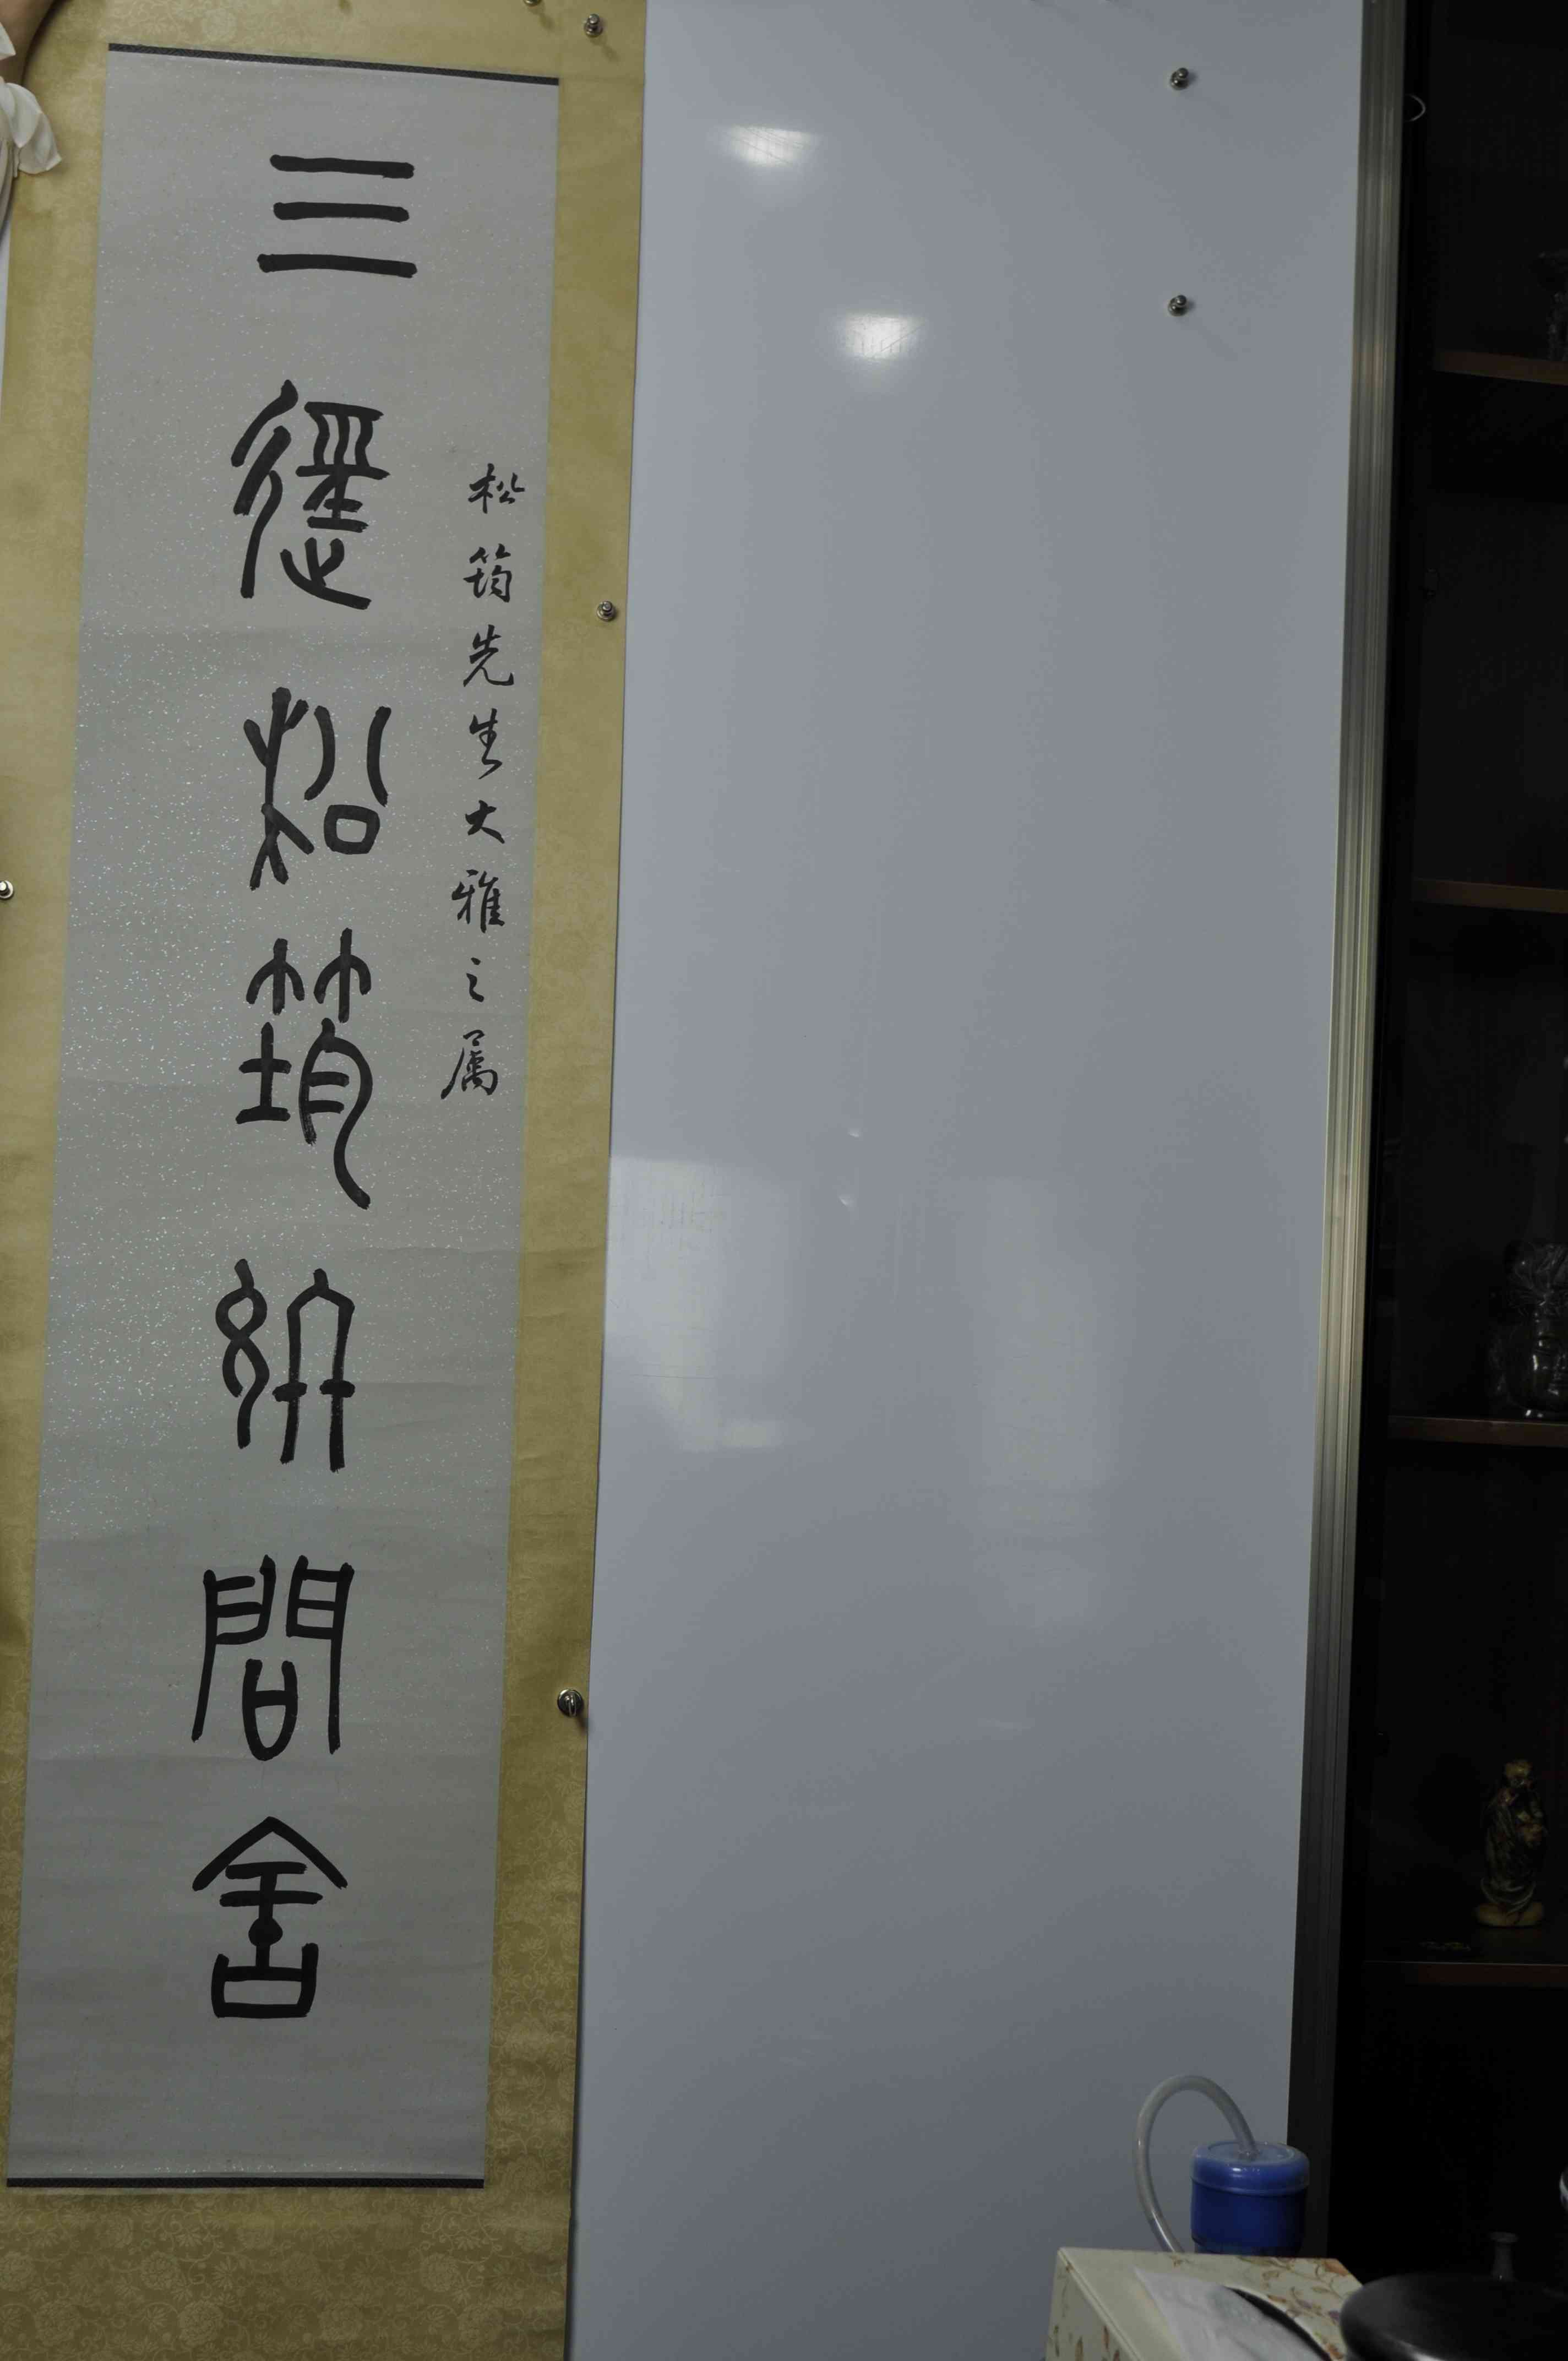 松筠先生大雅之属
三径松筠絣間舍